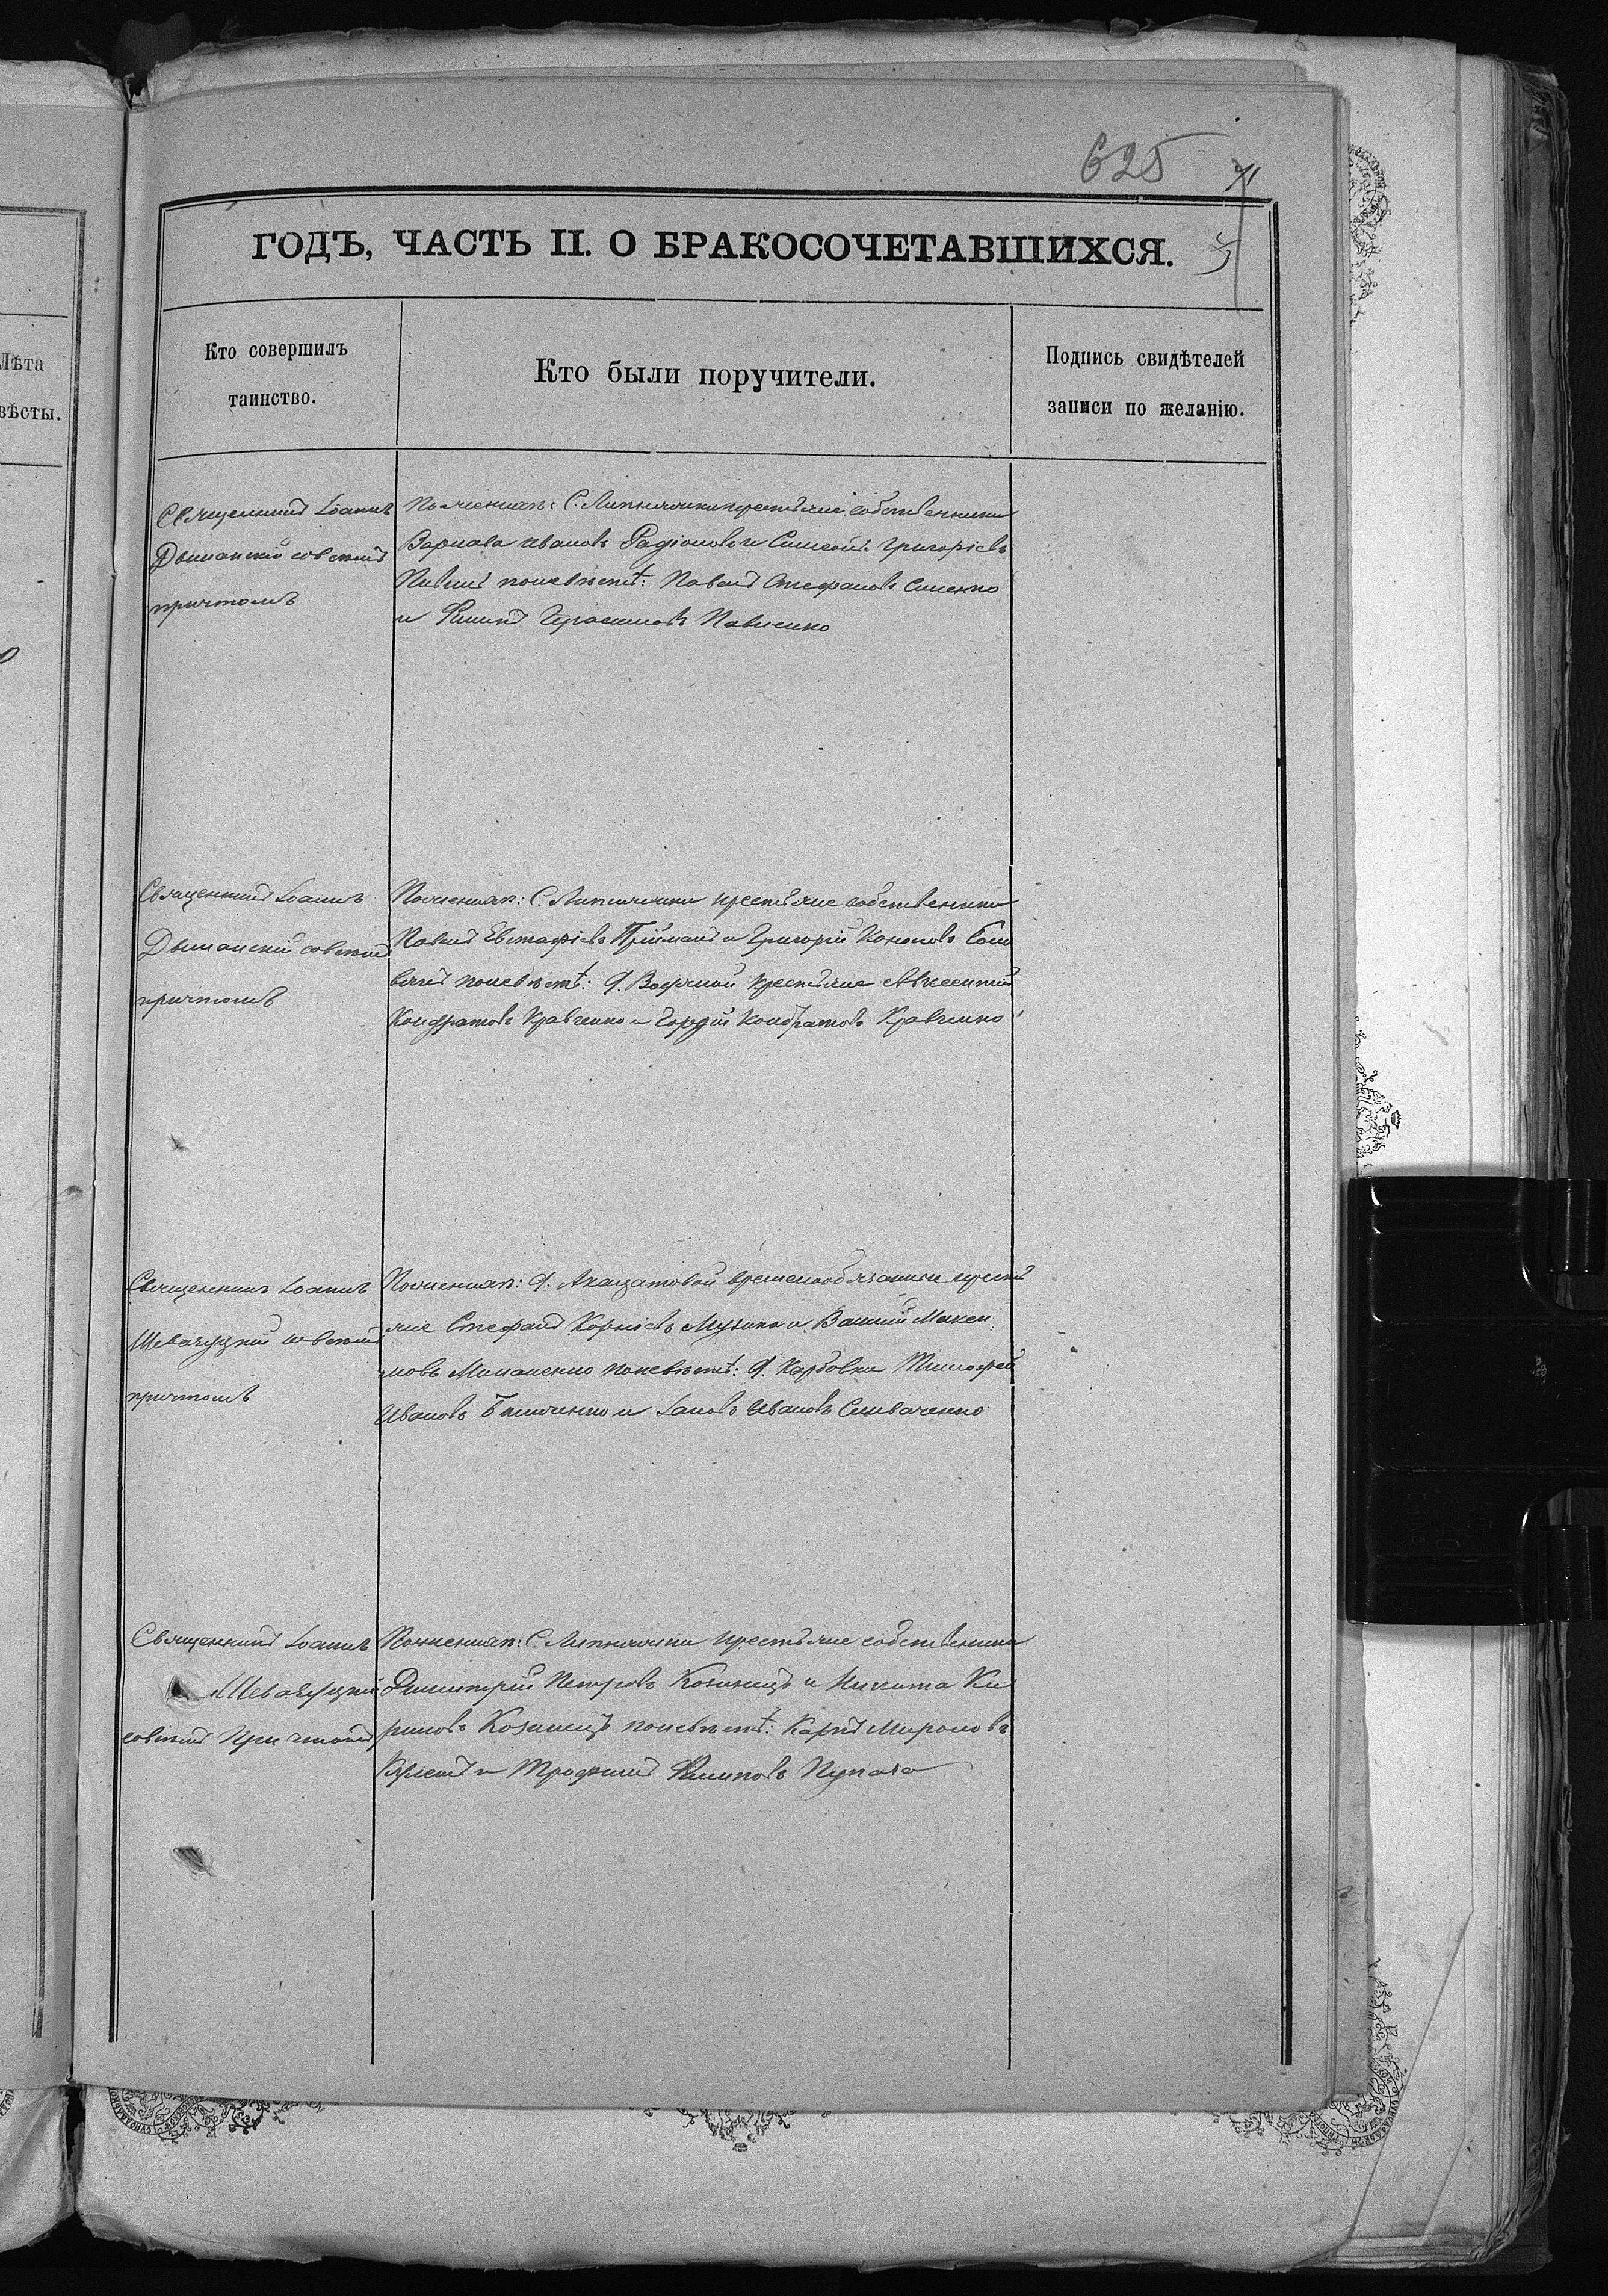 625
71
ГОДЪ, ЧАСТЬ II. О БРАКОСОЧЕТАВШИХСЯ.
Лѣта
вѣсты.
Кто совершилъ
таинство.
Кто были поручители.
Подпись свидѣтелей
записи по желанію.
Священникъ Іоаннъ
причтомъ
По женихѣ: С. Липнячки крестьяне собственники
Варнава Ивановъ Радіоновъ и Симеонъ Григорьевъ
по невѣстѣ: Павелъ Стефановъ
и Филипъ Герасимовъ Павленко
Священникъ Іоаннъ
причтомъ
По женихѣ: С. Липнячки крестьяне собственники
Павелъ Евстафіевъ Прійманъ и Григорій Кононовъ
по невѣстѣ: крестьяне Авксентій
Кондратовъ Кравченко и Гордій Кондратовъ Кравченко
Священникъ Іоаннъ
причтомъ
По женихѣ: временнообязанные кресть
яне Стефанъ Корніевъ Музыка и
по невѣстѣ: Д. Карбовки Тимофей
Ивановъ и Іаковъ Ивановъ
Священникъ Іоаннъ
причтомъ
По женихѣ: С. Липнячки крестьяне собственники
Димитрій Петровъ Козинецъ и Никита Ки
риловъ Козинецъ по невѣстѣ: Карпъ Мироновъ
и Трофимъ Филиповъ